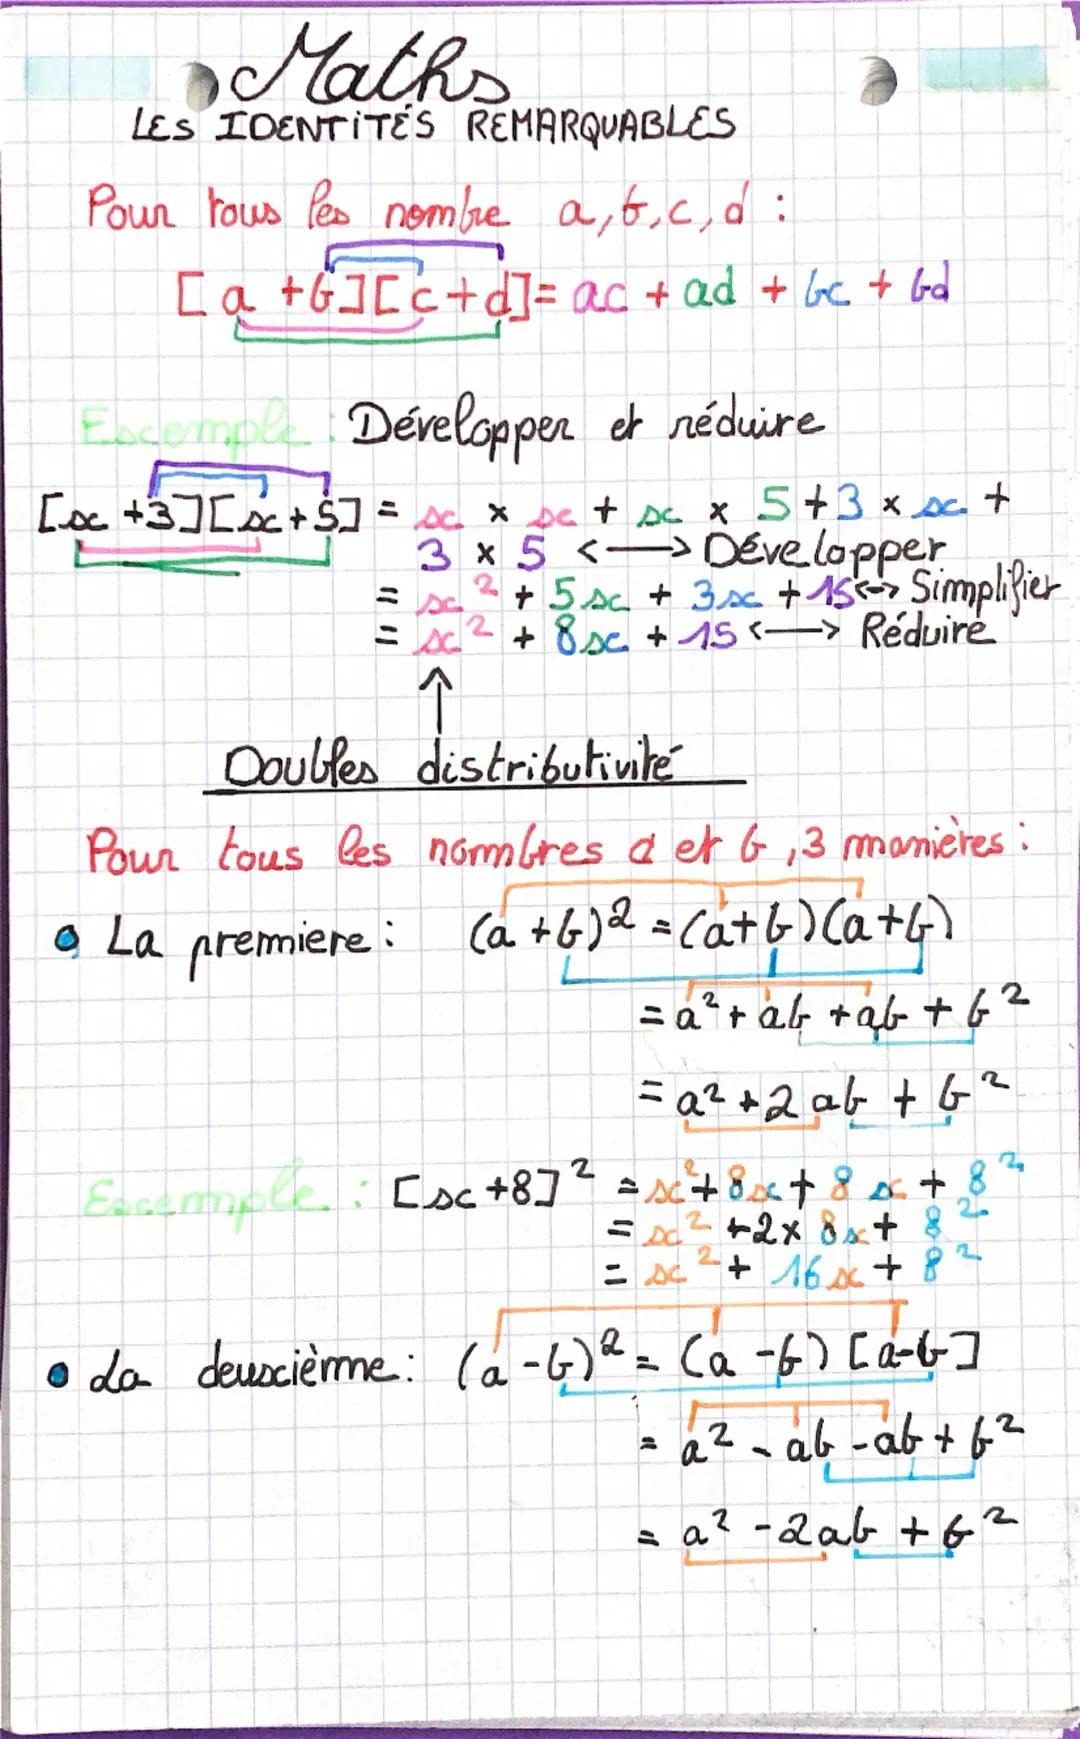 Maths
LES IDENTITÉS REMARQUABLES
Pour tous les nombre a, b, c, d :
[a +b][c+d]= ac + ad + bc + bd
Exemple : Développer et réduire
[x +3][x+5] = x × x + x × 5 + 3 × x +
3 × 5 <—> Développer
= x² + 5x + 3x + 15 <-> Simplifier
= x² + 8x + 15 <—> Réduire
Doubles distributivité
Pour tous les nombres a et b, 3 manières :
La premiere : (a +b)² = (a+b)(a+b)
= a² + ab + ab + b²
= a² + 2ab + b²
Exemple : [x +8]² = x² + 8x + 8x + 8²
= x² + 2× 8x + 8²
= x² + 16x + 8²
La deuxième : (a -b)² = (a -b) [a-b]
= a² - ab - ab + b²
= a² - 2ab + b²